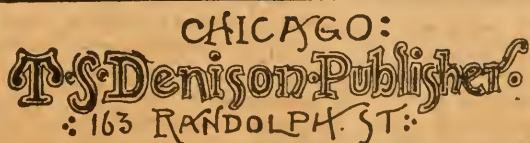 CHICAGO:
T·S·Denison·Publisher·
·: 163 RANDOLPH. ST:·